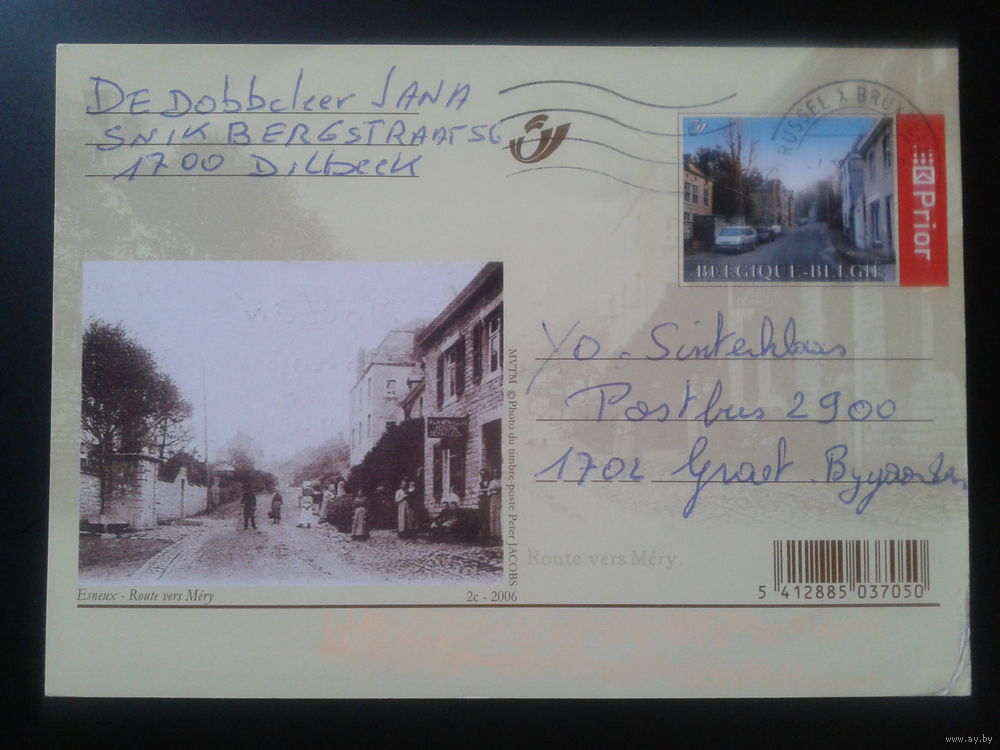 DE Dobbeleer JANA
SNIKBERGSTRAAT 56
1700 Dilbeek
BRUSSEL X BRUX
Prior
BELGIQUE-BELGIË
Yo. Sinterklaas
Postbus 2900
1702 Groet
MVTM ©Photo du timbre-poste Peter JACOBS
Route vers Méry.
5 412885 037050
Esneux - Route vers Méry
2c - 2006
www.ay.by